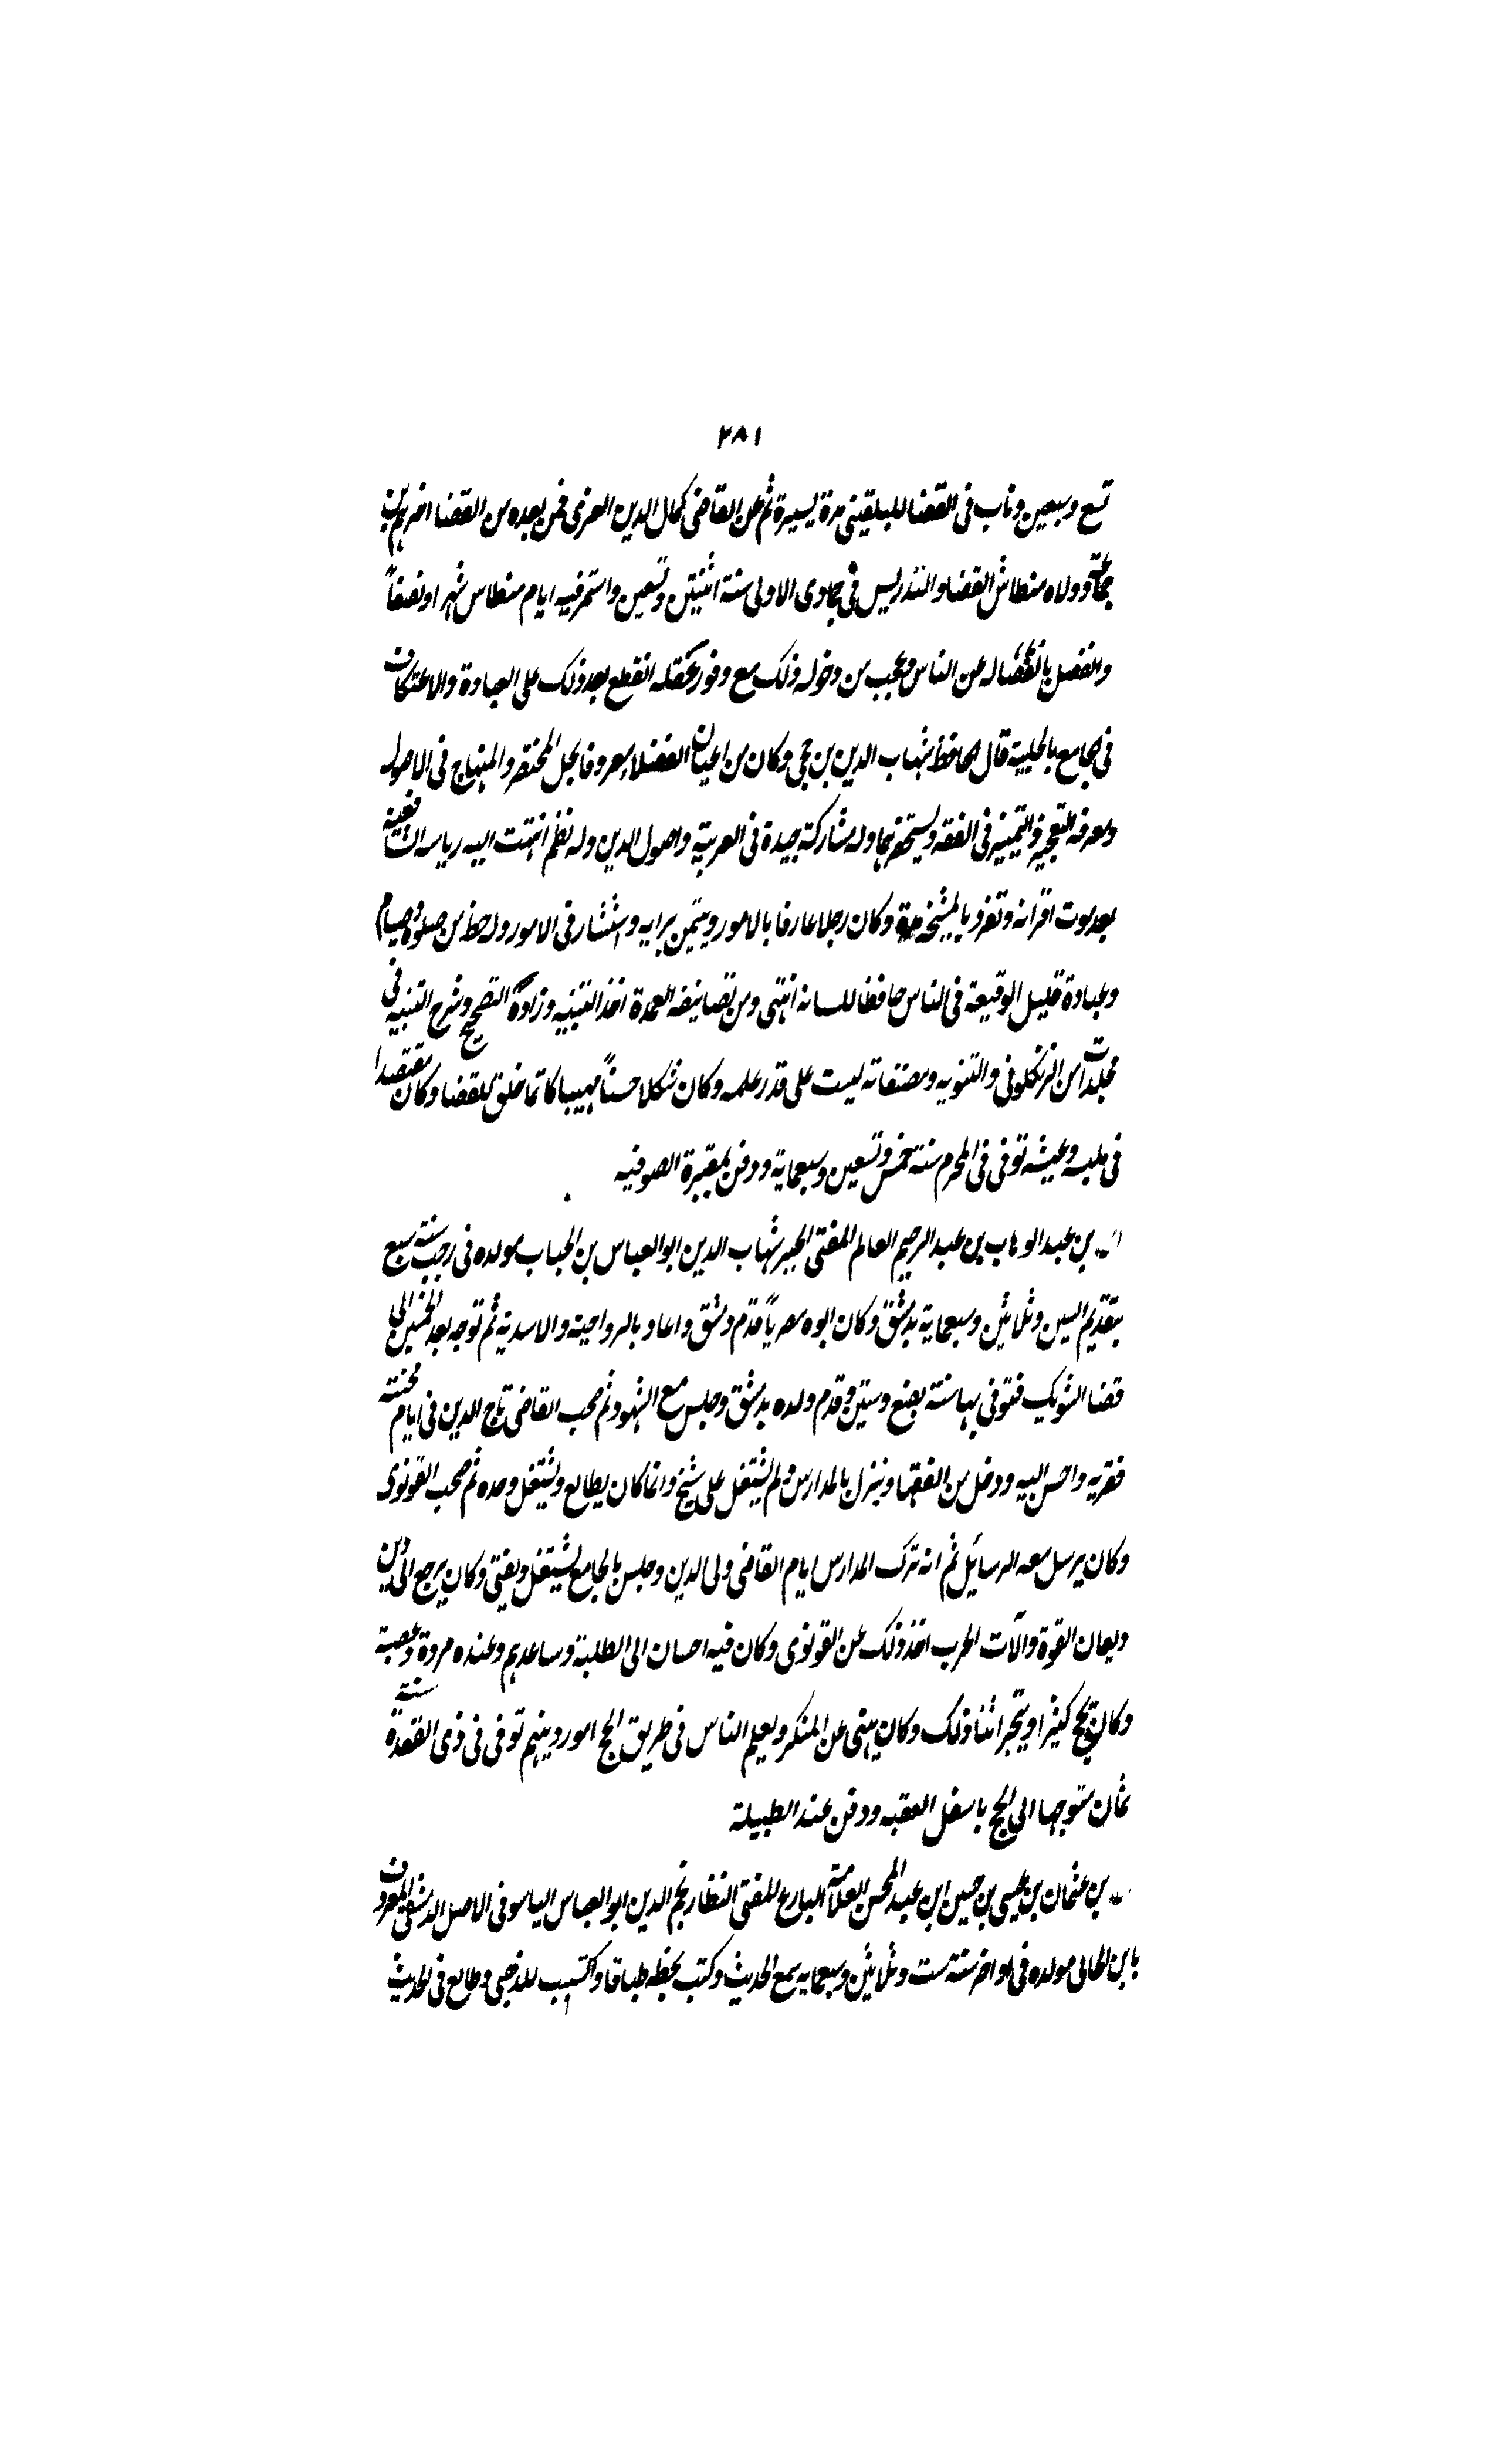 ٢٨١
تسع وسبعين وناب فى القضا للبلقينى مدة يسيرة ثم عن القاضى كمال الدين المعرى فمن بعده من القضا اخرهم ابن
جماعة وولاه منطاش القضا والتدريس فى جمادى الاولى سنة اثنتين وتسعين واستمر فيه ايام منطاس شهرا ونصفاً
وانفصل بانفصاله عن الناس وعجب من دخوله ذلك مع وفور عقله انقطع بعد ذلك على العبادة والاعتكاف
فى الجامع بالحلبية قال الحافظ شهاب الدين بن حجى وكان من اعيان الفضلاء معروفا بحل المختصر والمنهاج فى الاصول
ومعرفه التعجيز والتمييز فى الفقه ويستحضرهما وله مشاركة جيدة فى العربية واصول الدين وله نظم انتهت اليه رياسه الشافعية
بعد موت اقرانه وتفرد بالمشيخة مدة وكان رجلا عارفا بالامور ويتيمن برايه ويستشار فى الامور وله حظ من صلوة وصيام
وعبادة قليل الوقيعة فى الناس حافظا للسانه انتهى ومن تصانيفه العمدة اخذ التنبيه وزاده التصحيح وشرح التنبيه فى
مجلدات من الزنكلونى والتنويه ومصنفاته ليست على قدر علمه وكان شكلا حسناً مهيبا كانما خلق للقضا وكان مقتصدا
فى ملبسه وعيشه توفى فى المحرم سنة خمس وتسعين وسبعماية ودفن بمقبرة الصوفيه
بن عبد الوهاب بن عبد الرحيم العالم المفتى الحبر شهاب الدين ابو العباس بن الحباب مولده فى رجب سنة سبع
بتقديم السين وثلاثين وسبعماية بدمشق وكان ابوه مصرياً قدم دمشق واعاد بالرواحية والاسدية ثم توجه بعد الخمسين الى
قضا الشوبك فتوفى بها سنة بضع وستين وقدم ولده بدمشق وجلس مع الشهود ثم صحب القاضى تاج الدين فى ايام محنته
فقربه واحسن اليه ودخل من الفقها وينزل بالمدارس ولم يشتغل على شيخ وانما كان يطالع ويشتغل وحده ثم صحب القونوى
وكان يرسل معه الرسائل ثم انه ترك المدارس ايام القاضى ولى الدين وجلس بالجامع يشتغل ويفتى وكان يرجع الى دين
ويعان القوة والآت الحرب اخذ ذلك عن القونوى وكان فيه احسان الى الطلبة وساعدهم وعنده مروة وعصبة
وكان يحج كثيرا ويتجر اثنا ذلك وكان ينهى عن المنكر ويعلم الناس فى طريق الحج امور دينهم توفى فى ذى القعدة سنة
ثمان متوجها الى الحج باسفل العقبه ودفن عند الطبيلة
بن عثمان بن عيسى بن حسين ابن عبد المحسن العلامة البارع المفتى النظار نجم الدين ابو العباس الياسوفى الاصل الدمشقى المعروف
بابن الحابى مولده فى اواخر سنة ست وثلاثين وسبعمايه سمع الحديث وكتب بخطه طباقا واكتسب للذهبى وطالع فى الحديث